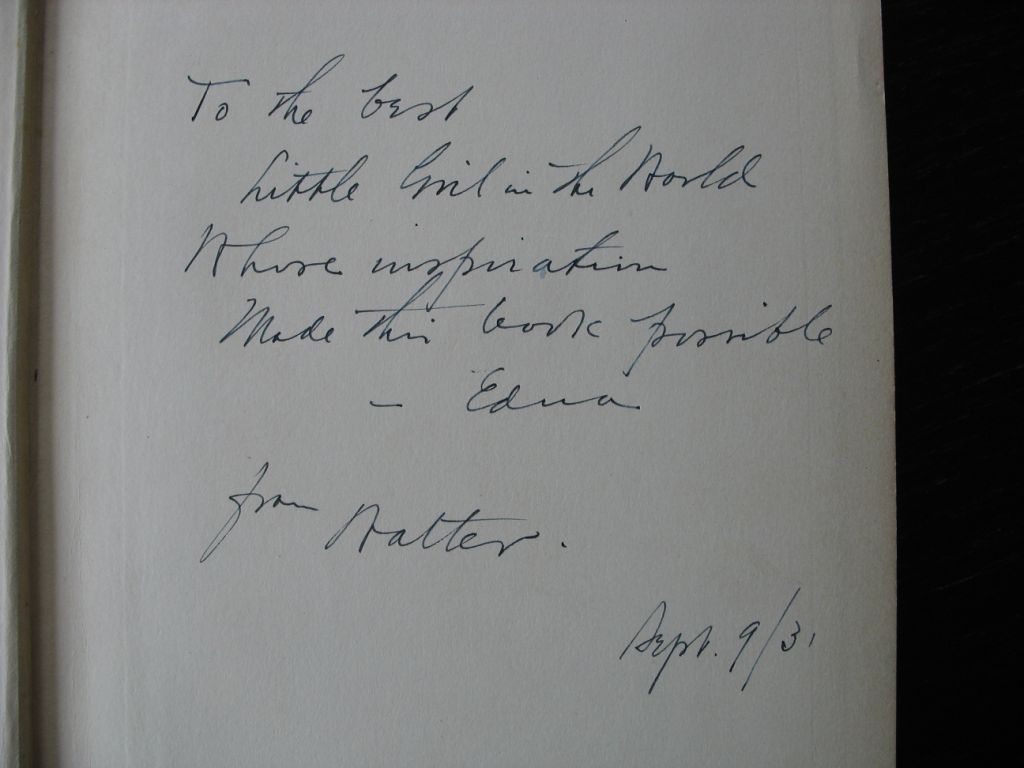 To the best
Little Girl in the World
Whose inspiration
Made this book possible
- Edna
from Walter.
Sept. 9/31